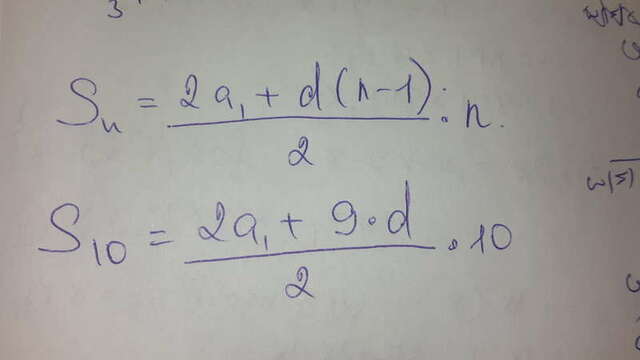 3
Sₙ = (2a₁ + d(n-1))/2 · n.
S₁₀ = (2a₁ + 9·d)/2 · 10